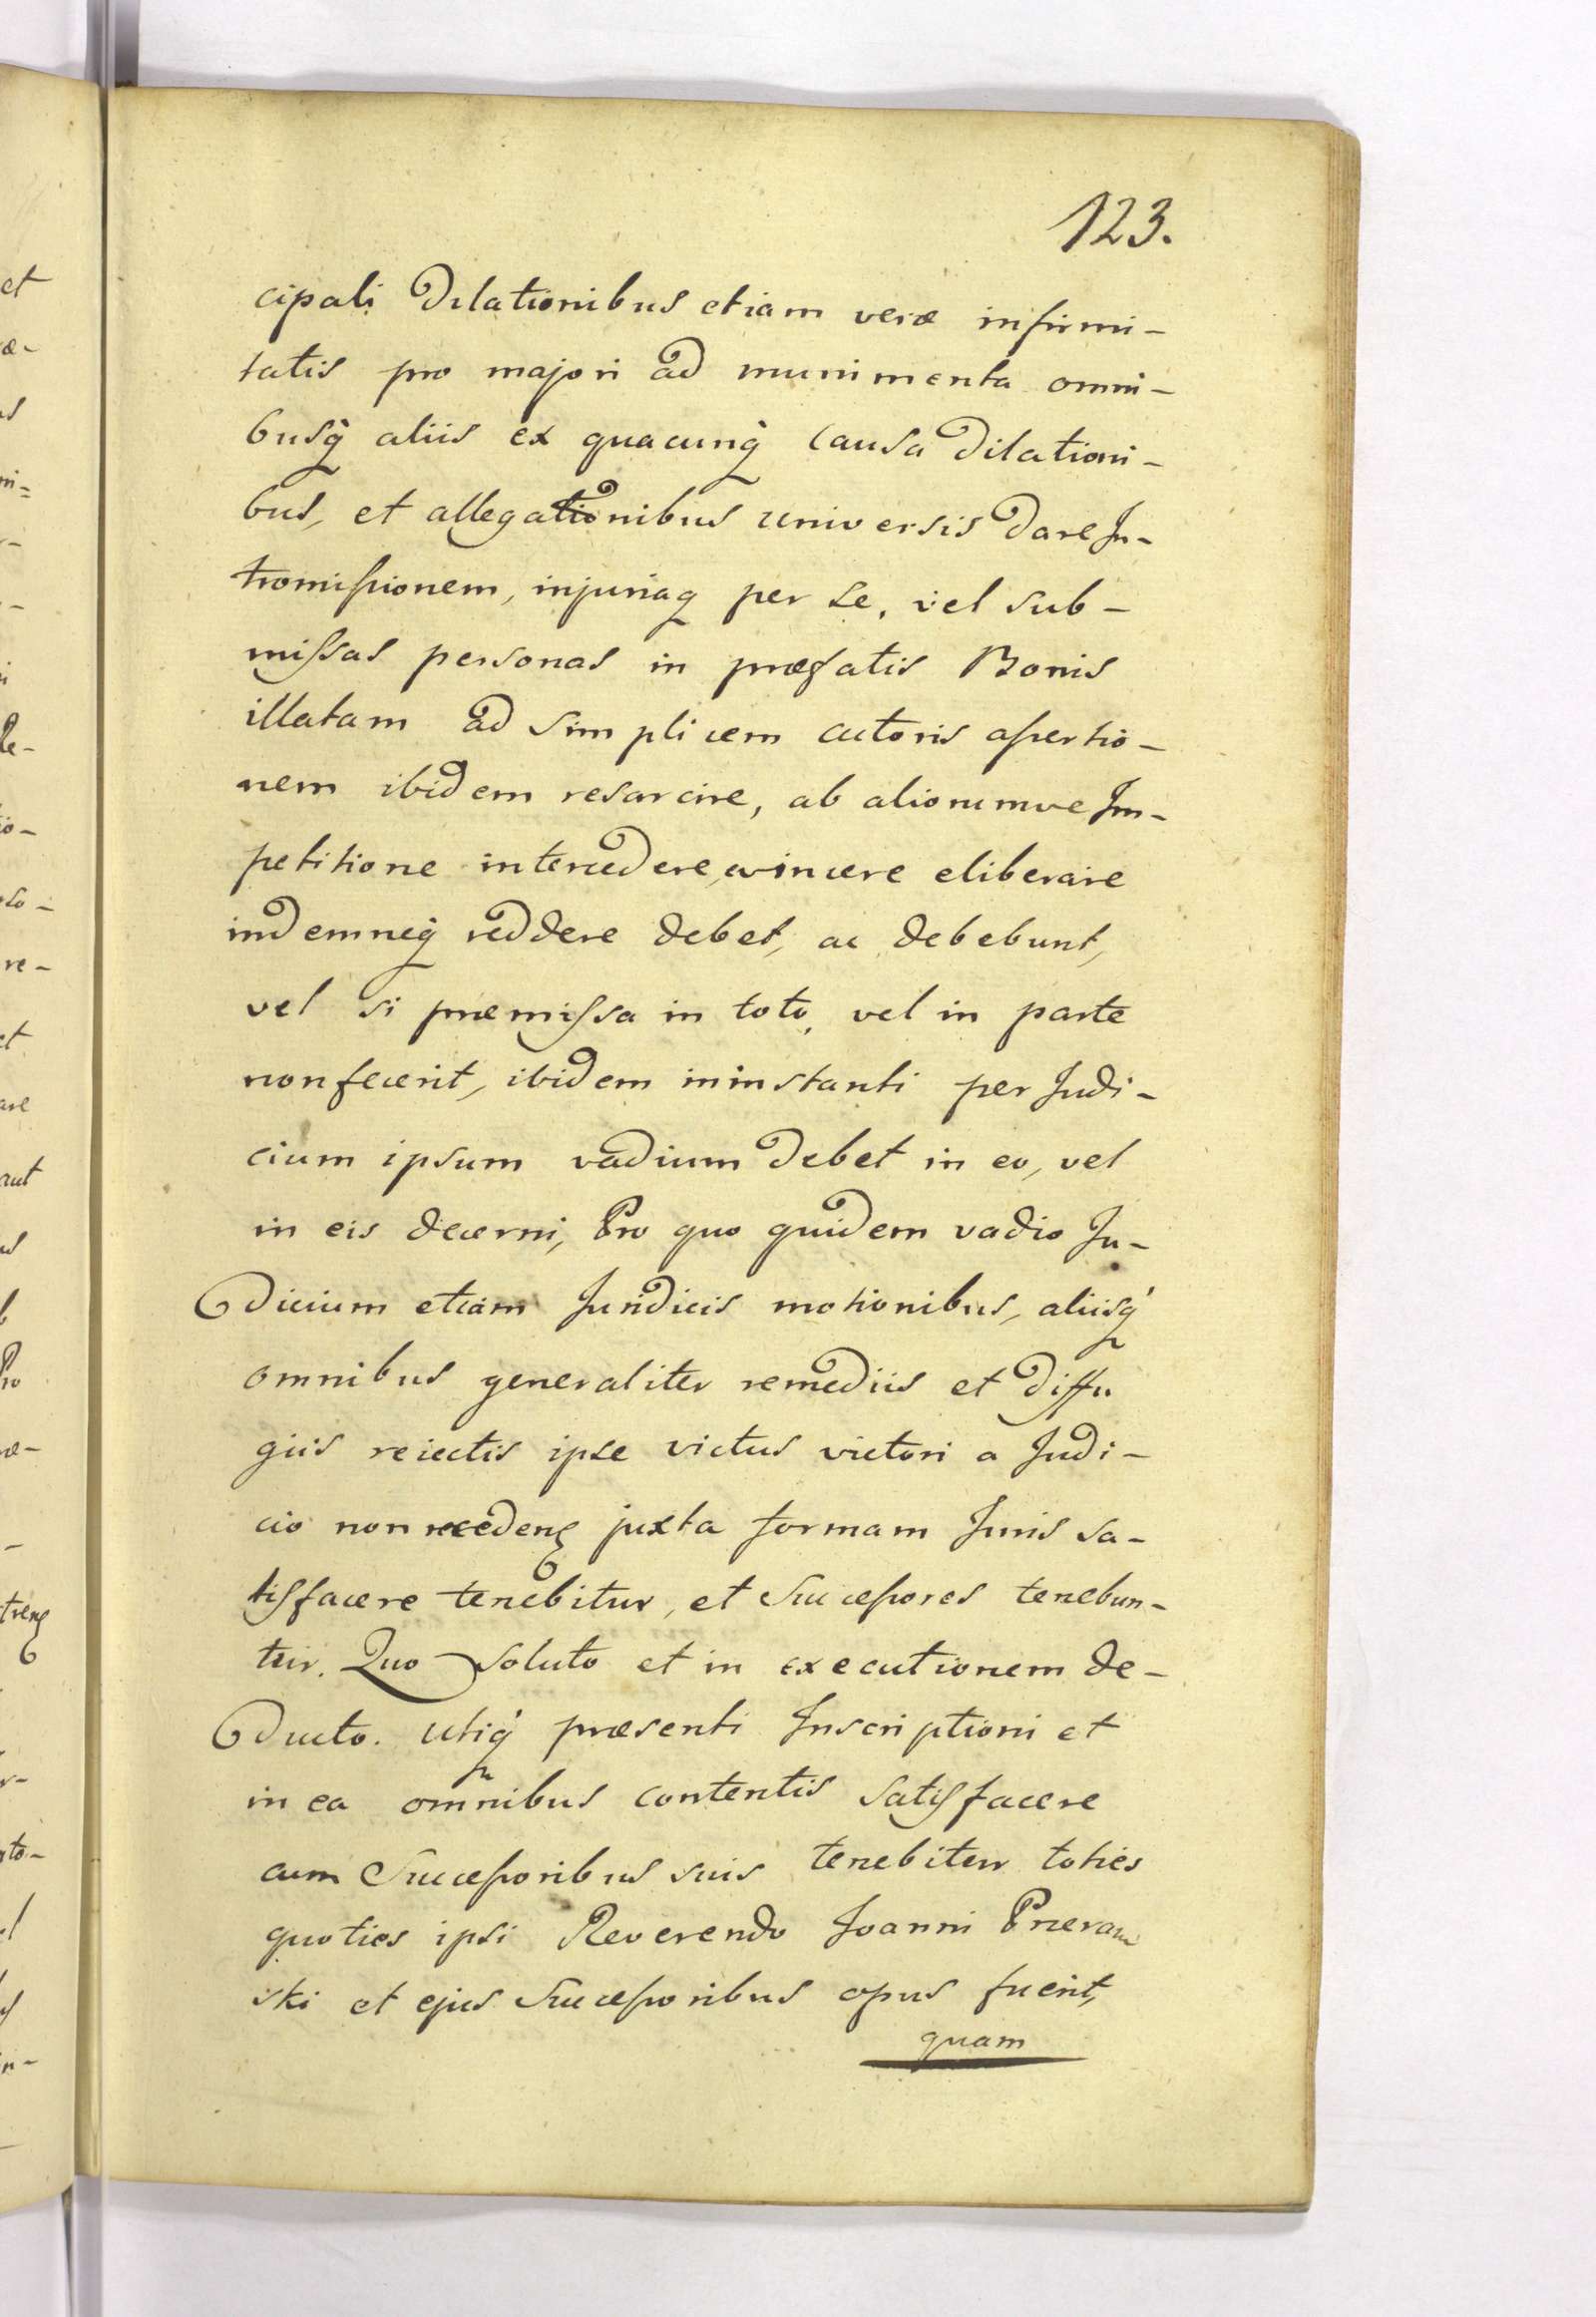 123.
cipali Dilationibus etiam veræ infirmi-
tatis pro majori ad munimenta omni-
busq̀ aliis ex quacunq̀ causa Dilationi-
bus, et allegationibus universis Dare In-
tromissionem, injuriaq per se, vel sub-
missas personas in præfatis Bonis
illatam ad simplicem actoris assertio-
nem ibidem resarcire, ab aliorumve Im-
petitione intercedere, evincere eliberare
indemneq̀ reddere debet, ac debebunt,
vel si præmissa in toto, vel in parte
non fecerit, ibidem in instanti per Judi-
cium ipsum vadium debet in eo, vel
in eis decerni, Pro quo quidem vadio Ju-
dicium etiam Juridicis motionibus, aliisq́
omnibus generaliter remediis et diffu
giis reiectis ipse victus victori a Judi-
cio non recedens juxta formam Juris sa-
tisfacere tenebitur, et Successores tenebun-
tur. Quo soluto et in executionem de-
ducto. Utiq́ præsenti Inscriptioni et
in ea omnibus contentis satisfacere
cum Successoribus suis tenebitur toties
quoties ipsi Reverendo Joanni
ski et ejus Successoribus opus fuerit,
quam
et
æ-
ni-
Re-
io-
re-
et
are
aut
Pro
to-
n-